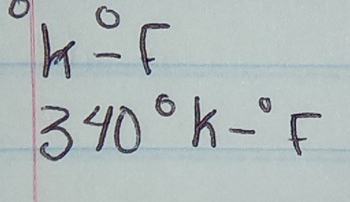 °K-°F
340°K-°F